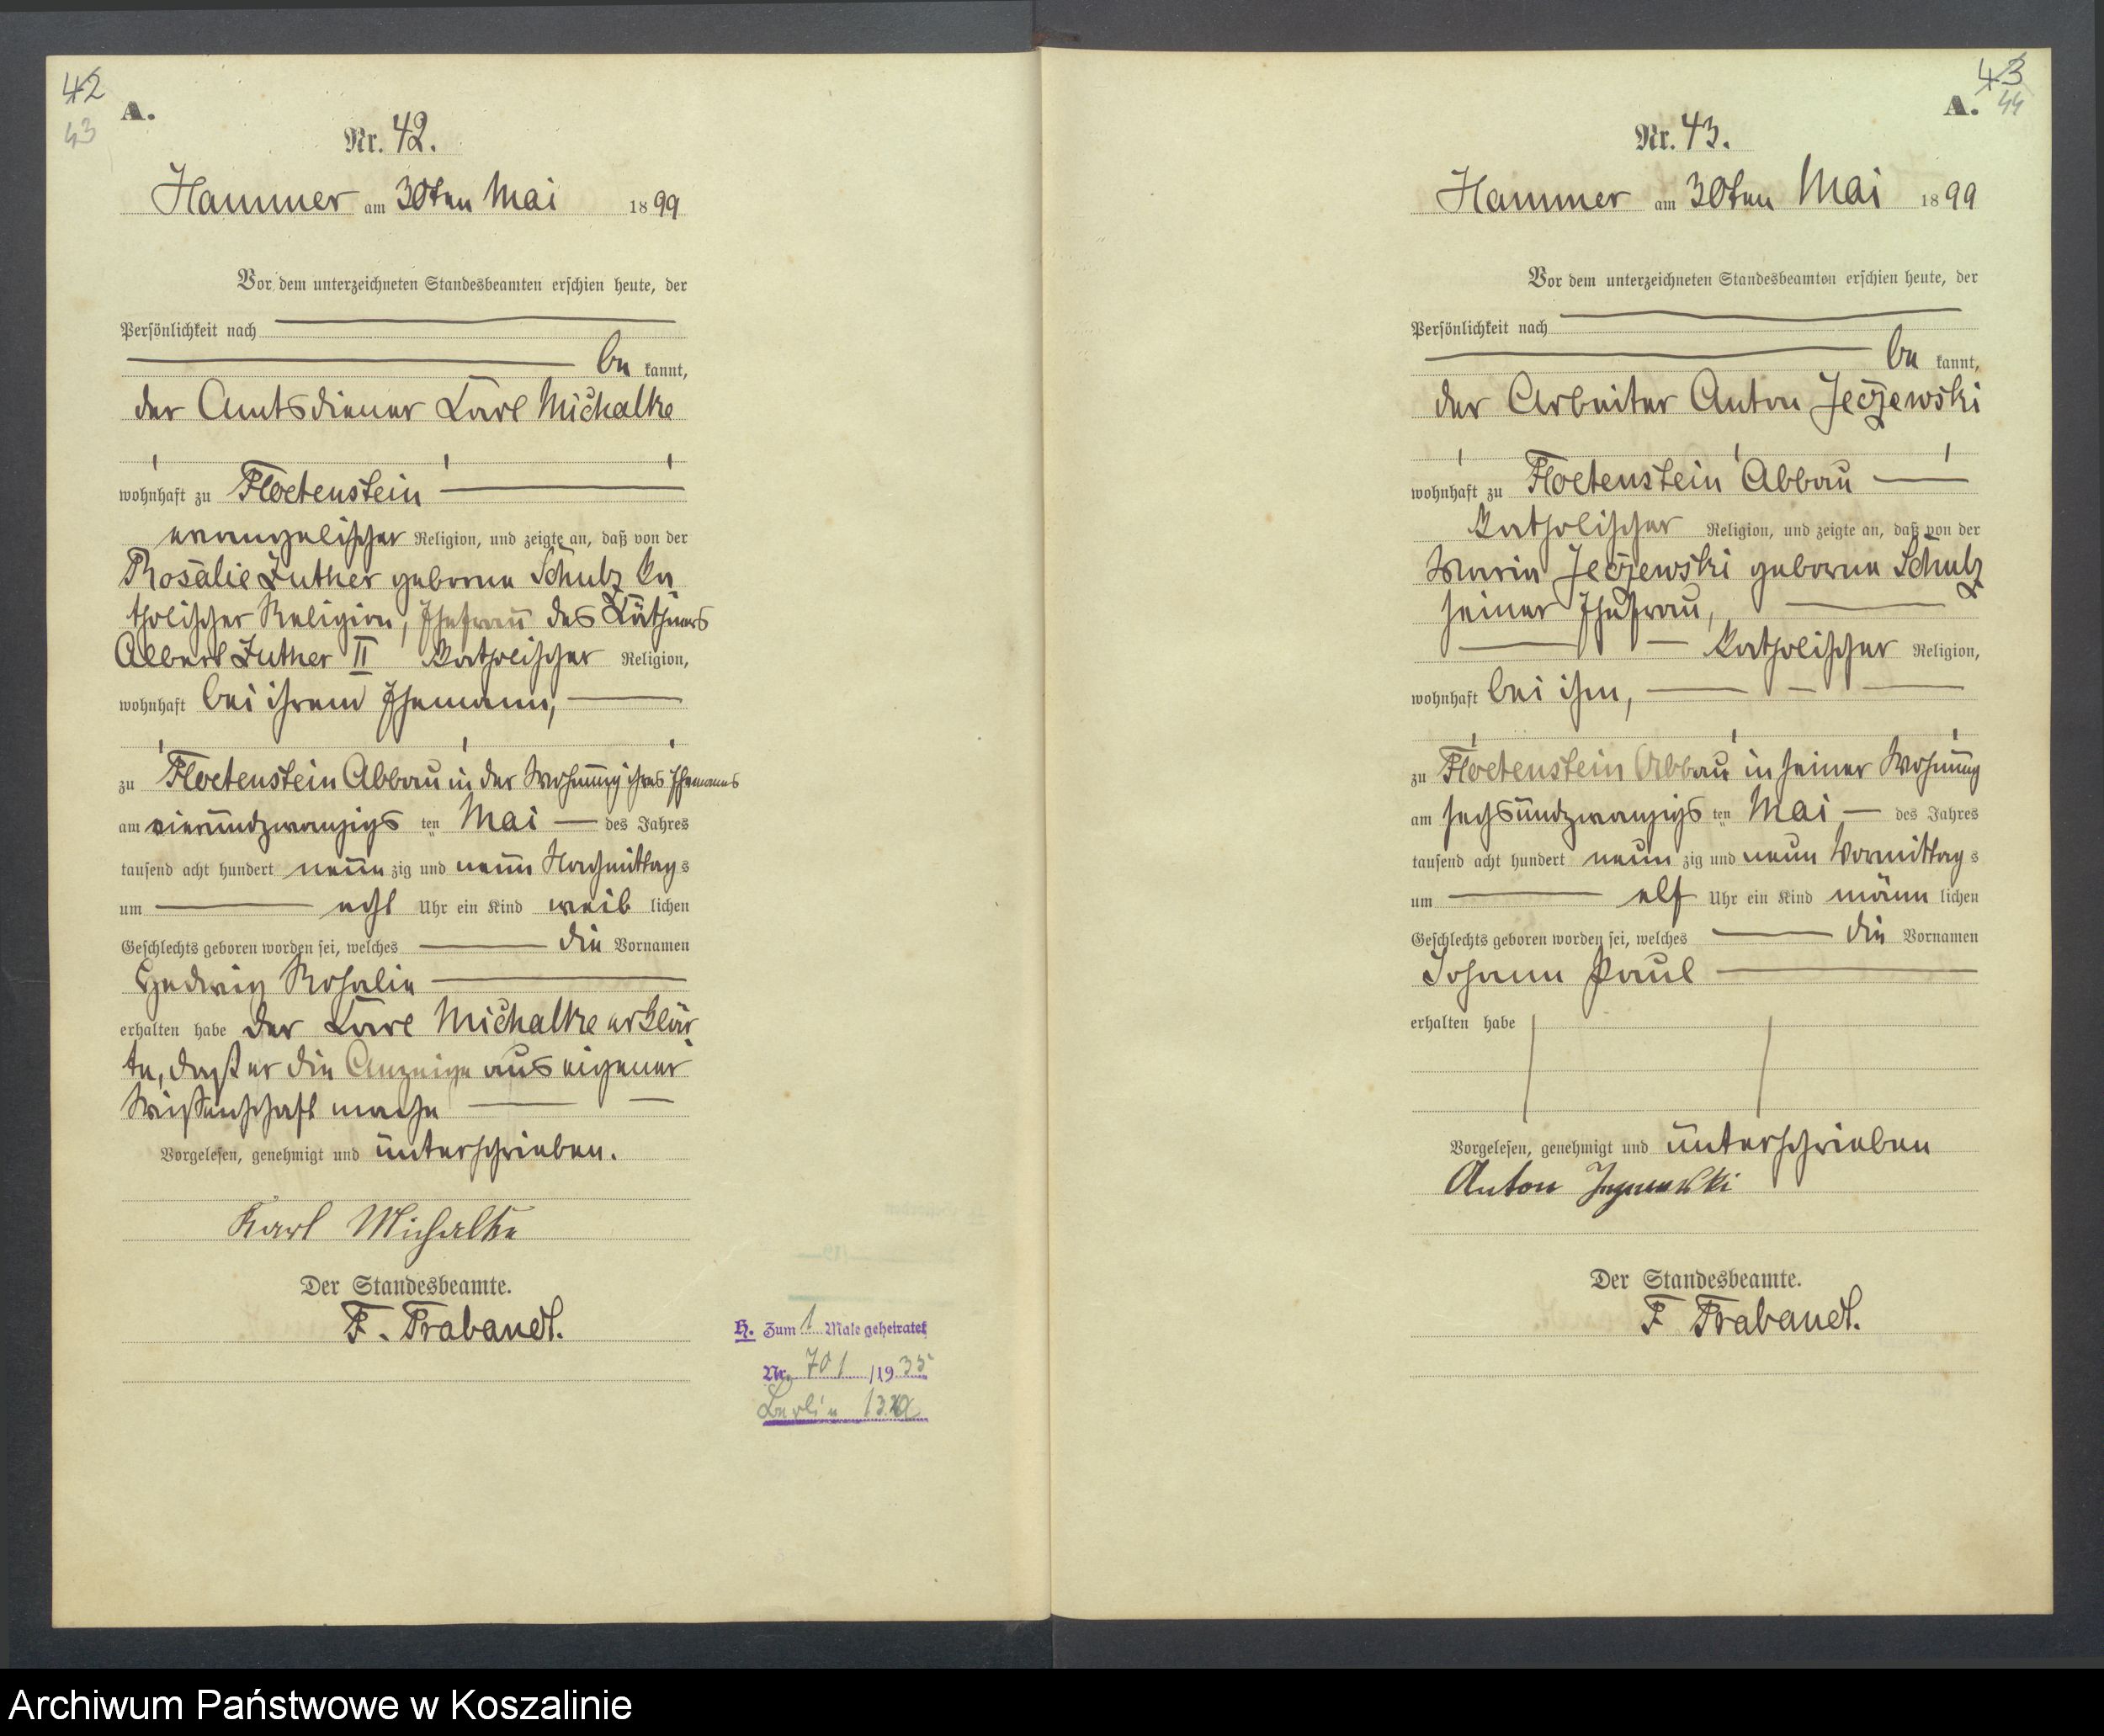 42
43
A.
Nr. 42.
Hammer am 30ten Mai 1899
Vor dem unterzeichneten Standesbeamten erschien heute, der
Persönlichkeit nach
be kannt,
der Amtsdiener Karl Michalke
wohnhaft zu Floetenstein
evangelischer Religion, und zeigte an, daß von der
Rosalie Luther geborne Schulz ka
tholischer Religion, Ehefrau des Käthners
Albert Luther II katholischer Religion,
wohnhaft bei ihrem Ehemann,
zu Floetenstein Abbau in der Wohnung ihres Ehemanns
am vierundzwanzigs ten Mai des Jahres
tausend acht hundert neun zig und neun Nachmittag s
um acht Uhr ein Kind weib lichen
Geschlechts geboren worden sei, welches die Vornamen
Hedwig Rosalie
erhalten habe der Karl Michalke erklär
te, daß er die Anzeige aus eigener
Wissenschaft mache
Vorgelesen, genehmigt und unterschrieben.
Karl Michalke
Der Standesbeamte.
F. Trabandt.
H. Zum 1 Male geheiratet
Nr. 701 /1935
Berlin 13.a
43
44
A.
Nr. 43.
Hammer am 30ten Mai 1899
Vor dem unterzeichneten Standesbeamten erschien heute, der
Persönlichkeit nach
be kannt,
der Arbeiter Anton Jeżewski
wohnhaft zu Floetenstein Abbau
katholischer Religion, und zeigte an, daß von der
Maria Jeżewski geborne Schulz
seiner Ehefrau,
katholischer Religion,
wohnhaft bei ihm,
zu Floetenstein Abbau in seiner Wohnung
am sechsundzwanzigs ten Mai des Jahres
tausend acht hundert neun zig und neun Vormittag s
um elf Uhr ein Kind männ lichen
Geschlechts geboren worden sei, welches die Vornamen
Johann Paul
erhalten habe
Vorgelesen, genehmigt und unterschrieben
Anton
Der Standesbeamte.
F Trabandt.
Archiwum Państwowe w Koszalinie